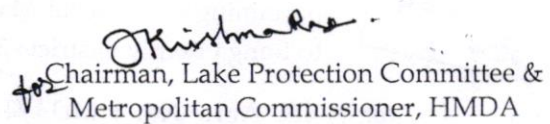 for Chairman, Lake Protection Committee &
Metropolitan Commissioner, HMDA